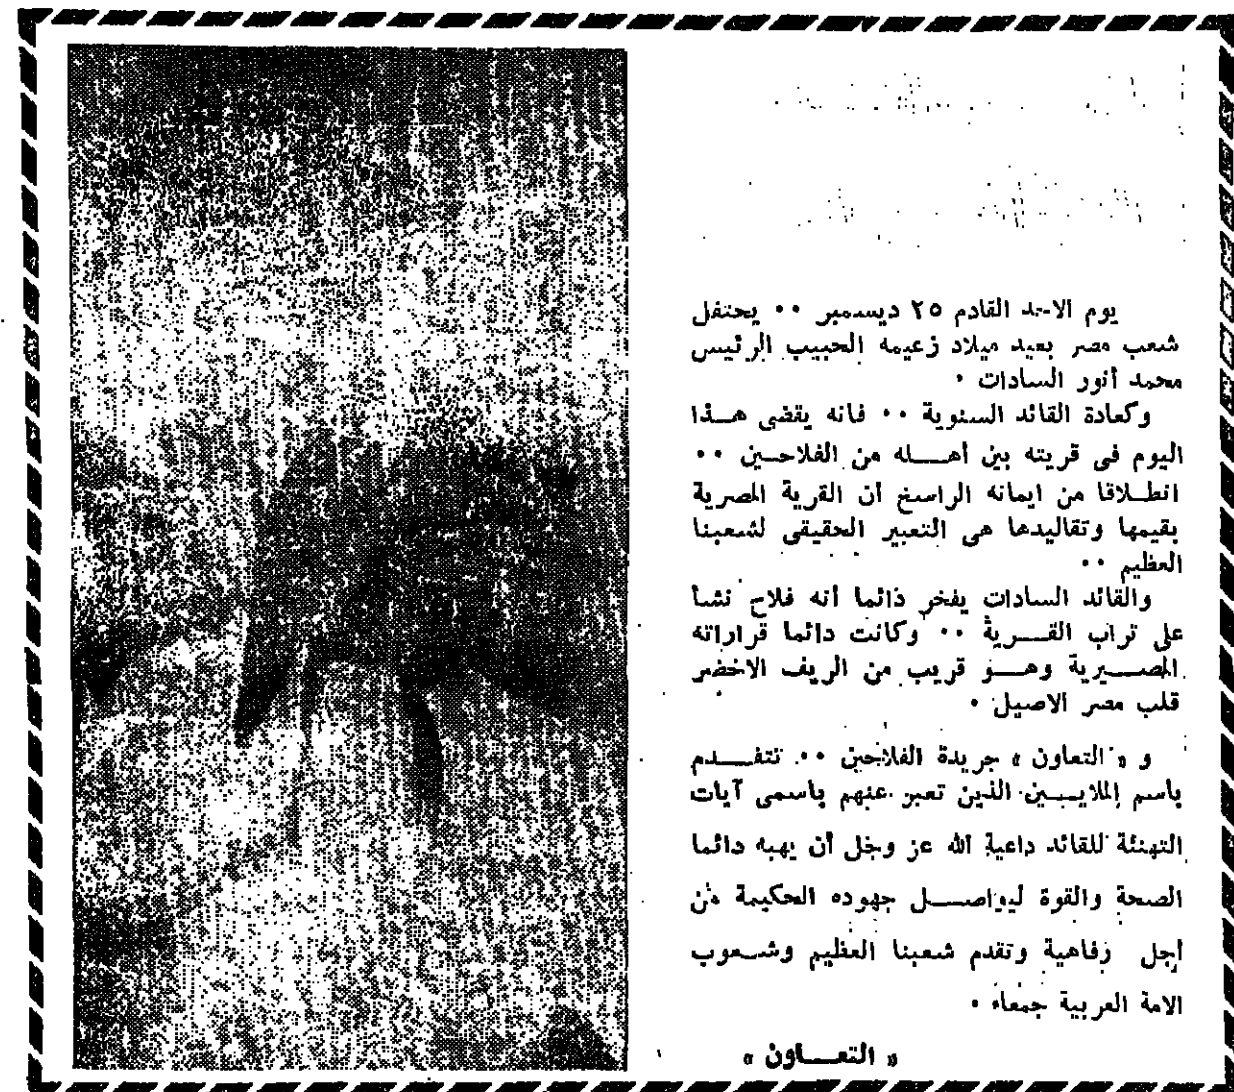 يوم الاحد القادم ٢٥ ديسمبر ٠٠ يحتفل
شعب مصر بعيد ميلاد زعيمه الحبيب الرئيس
محمد أنور السادات ٠
وكعادة القائد السنوية ٠٠ فانه يقضى هــذا
اليوم فى قريته بين أهــــله من الفلاحــين ٠٠
انطــلاقا من ايمانه الراسخ أن القرية المصرية
بقيمها وتقاليدها هى التعبير الحقيقى لشعبنا
العظيم ٠٠
والقائد السادات يفخر دائما أنه فلاح نشأ
على تراب القــــرية ٠٠ وكانت دائما قراراته
المصــــيرية وهــــو قريب من الريف الاخضر
قلب مصر الاصيل ٠
و « التعاون » جريدة الفلاحين ٠٠ تتقــــدم
باسم الملايــــين الذين تعبر عنهم باسمى آيات
التهنئة للقائد داعية الله عز وجل أن يهبه دائما
الصحة والقوة ليواصــــل جهوده الحكيمة من
أجل رفاهية وتقدم شعبنا العظيم وشــعوب
الامة العربية جمعاء ٠
« التعــــاون »